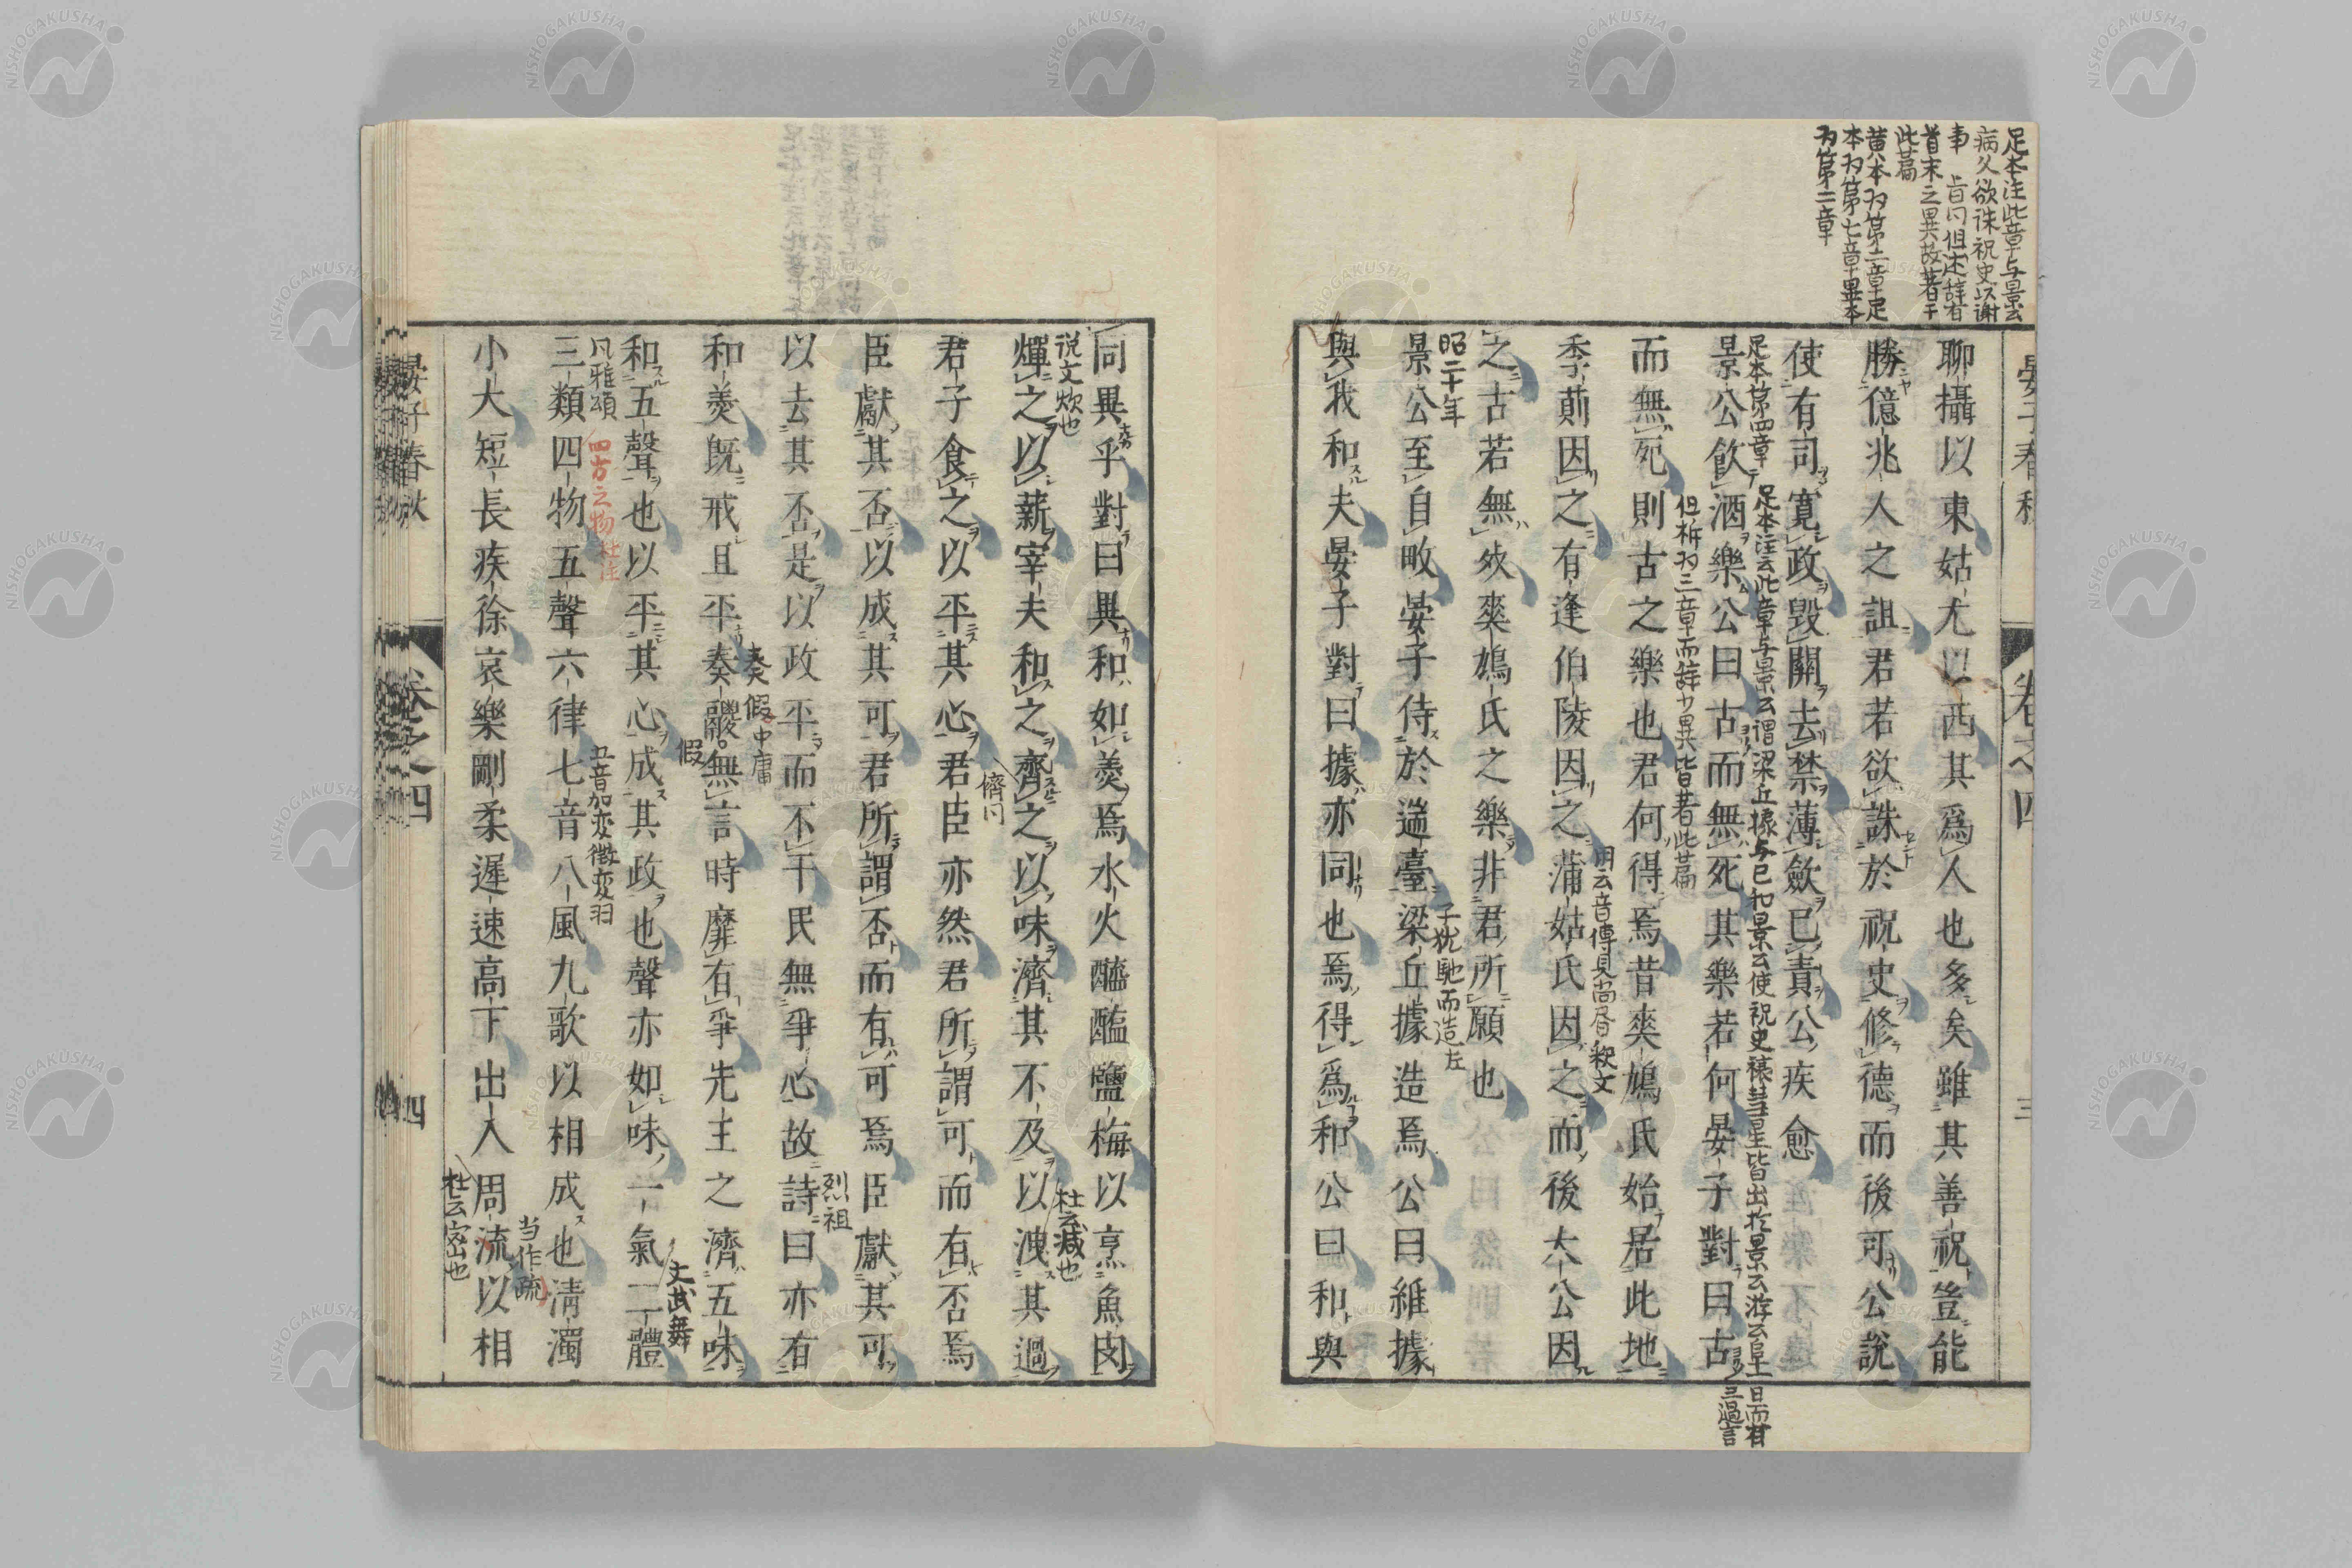 足本注此章与景公
病久欲誅祝史以謝
事 旨同但述辞有
首末之異故著于
此篇
黄本为第二章足
本为第七章異本
为第二章
聊攝以東姑尤以西其爲人也多矣雖其善祝豈能
勝億兆人之詛君若欲誅於祝史修德而後可公說
使有司寛政毀關去禁薄歛已責公疾愈
足本第四章
足本注云此章与景公謂梁丘據与已和景公使祝史禳彗星皆出於景公游公阜一日而有
三過言
景公飮酒樂公曰古而無死其樂若何晏子對曰古
但析为三章而辞少異皆著此篇
而無死則古之樂也君何得焉昔爽鳩氏始居此地
季萴因之有逢伯陵因之蒲姑氏因之而後太公因
之古若無死爽鳩氏之樂非君所願也
昭二十年
景公至自畋晏子侍於遄臺梁丘據造焉公曰維據
與我和夫晏子對曰據亦同也焉得爲和公曰和與
同異乎對曰異和如羹焉水火醯醢鹽梅以烹魚肉
説文炊也
杜云減也
燀之以薪宰夫和之齊之以味濟其不及以洩其過
君子食之以平其心君臣亦然君所謂可而有否焉
臣獻其否以成其可君所謂否而有可焉臣獻其可
烈祖
以去其否是以政平而不干民無爭心故詩曰亦有
奏假中庸
和羹旣戒且平奏鬷無言時靡有爭先王之濟五味
假
文武舞
和五聲也以平其心成其政也聲亦如味一氣二體
凡雅頌
四方之物杜注
五音加変徴変羽
三類四物五聲六律七音八風九歌以相成也淸濁
当作疏
小大短長疾徐哀樂剛柔遲速高下出入周流以相
杜云密也
晏子春秋
卷之四
四